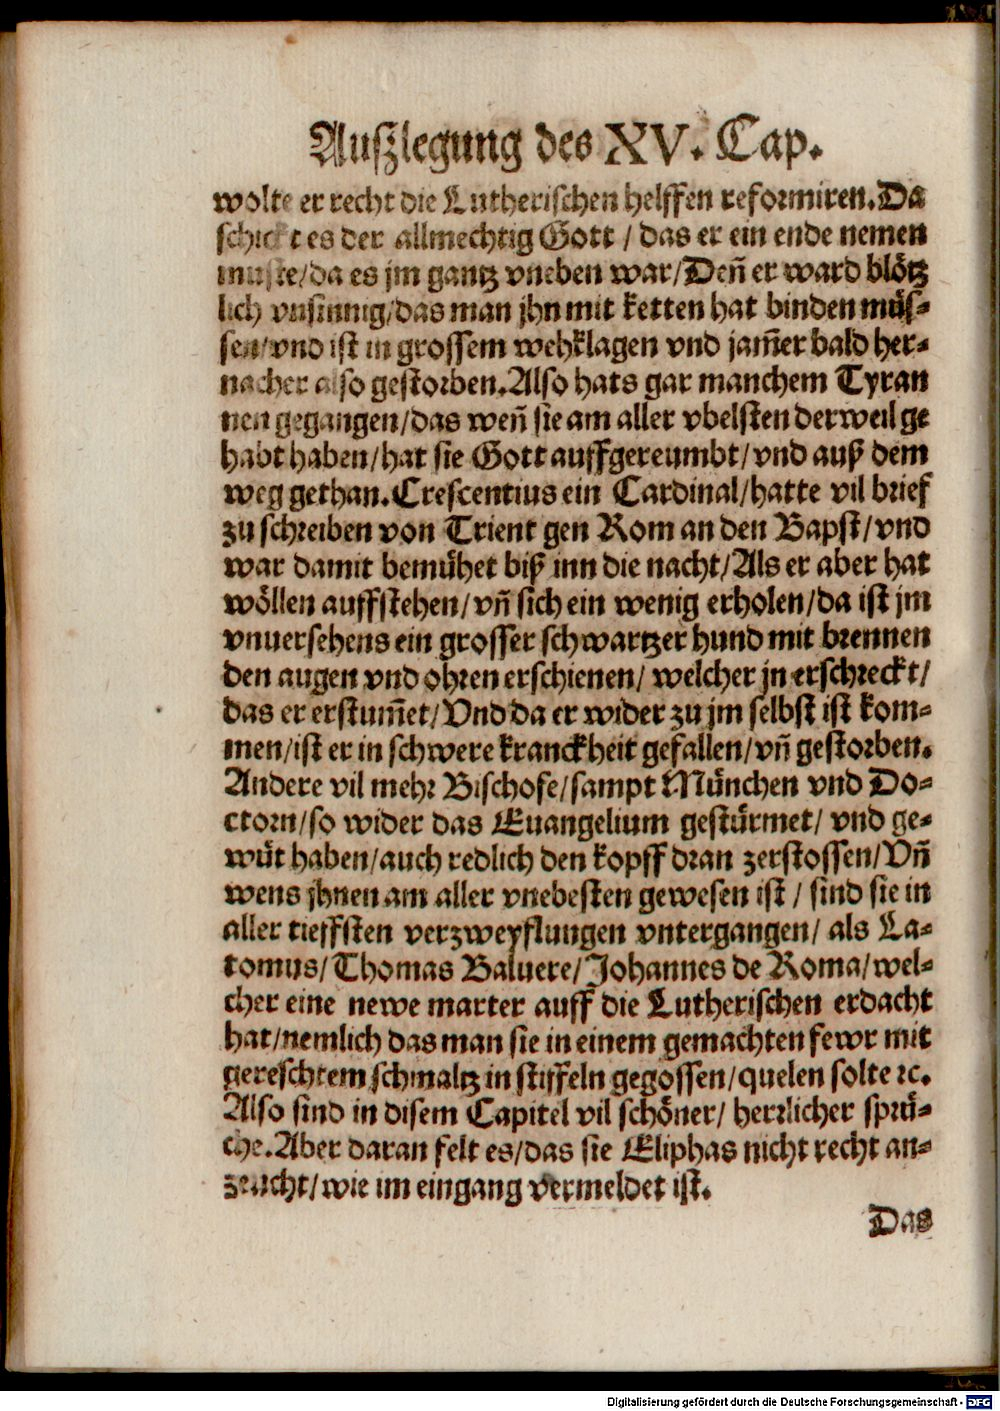 Auſzlegung des XV. Cap.
wolte er recht die Lutheriſchen helffen reformiren. Da
ſchickt es der allmechtig Gott / das er ein ende nemen
muſte/da es jm gantz vneben war/Deñ er ward blötz
lich vnſinnig/das man jhn mit ketten hat binden müſ-
ſen/vnd iſt in groſſem wehklagen vnd jam̃er bald her-
nacher alſo geſtorben. Alſo hats gar manchem Tyran
nen gegangen/das weñ ſie am aller vbelſten derweil ge
habt haben/hat ſie Gott auffgereumbt/vnd auß dem
weg gethan. Creſcentius ein Cardinal/hatte vil brief
zu ſchreiben von Trient gen Rom an den Bapſt/vnd
war damit bemühet biß inn die nacht/Als er aber hat
wöllen auffſtehen/vñ ſich ein wenig erholen/da iſt jm
vnuerſehens ein groſſer ſchwartzer hund mit brennen
den augen vnd ohren erſchienen/ welcher jn erſchreckt/
das er erſtum̃et/Vnd da er wider zu jm ſelbſt iſt kom-
men/iſt er in ſchwere kranckheit gefallen/vñ geſtorben.
Andere vil mehr Biſchofe/ſampt München vnd Do-
ctorn/ſo wider das Euangelium geſtürmet/ vnd ge-
wüt haben/auch redlich den kopff dran zerſtoſſen/Vñ
wens jhnen am aller vnebeſten geweſen iſt / ſind ſie in
aller tieffſten verzweyflungen vntergangen/ als La-
tomus/Thomas Baluere/Johannes de Roma/wel-
cher eine newe marter auff die Lutheriſchen erdacht
hat/nemlich das man ſie in einem gemachten fewr mit
gereſchtem ſchmaltz in ſtiffeln gegoſſen/quelen ſolte ꝛc.
Alſo ſind in diſem Capitel vil ſchöner/ herrlicher ſprü-
che. Aber daran felt es/das ſie Eliphas nicht recht an-
zeucht/wie im eingang vermeldet iſt.
Das
Digitalisierung gefördert durch die Deutsche Forschungsgemeinschaft - DFG